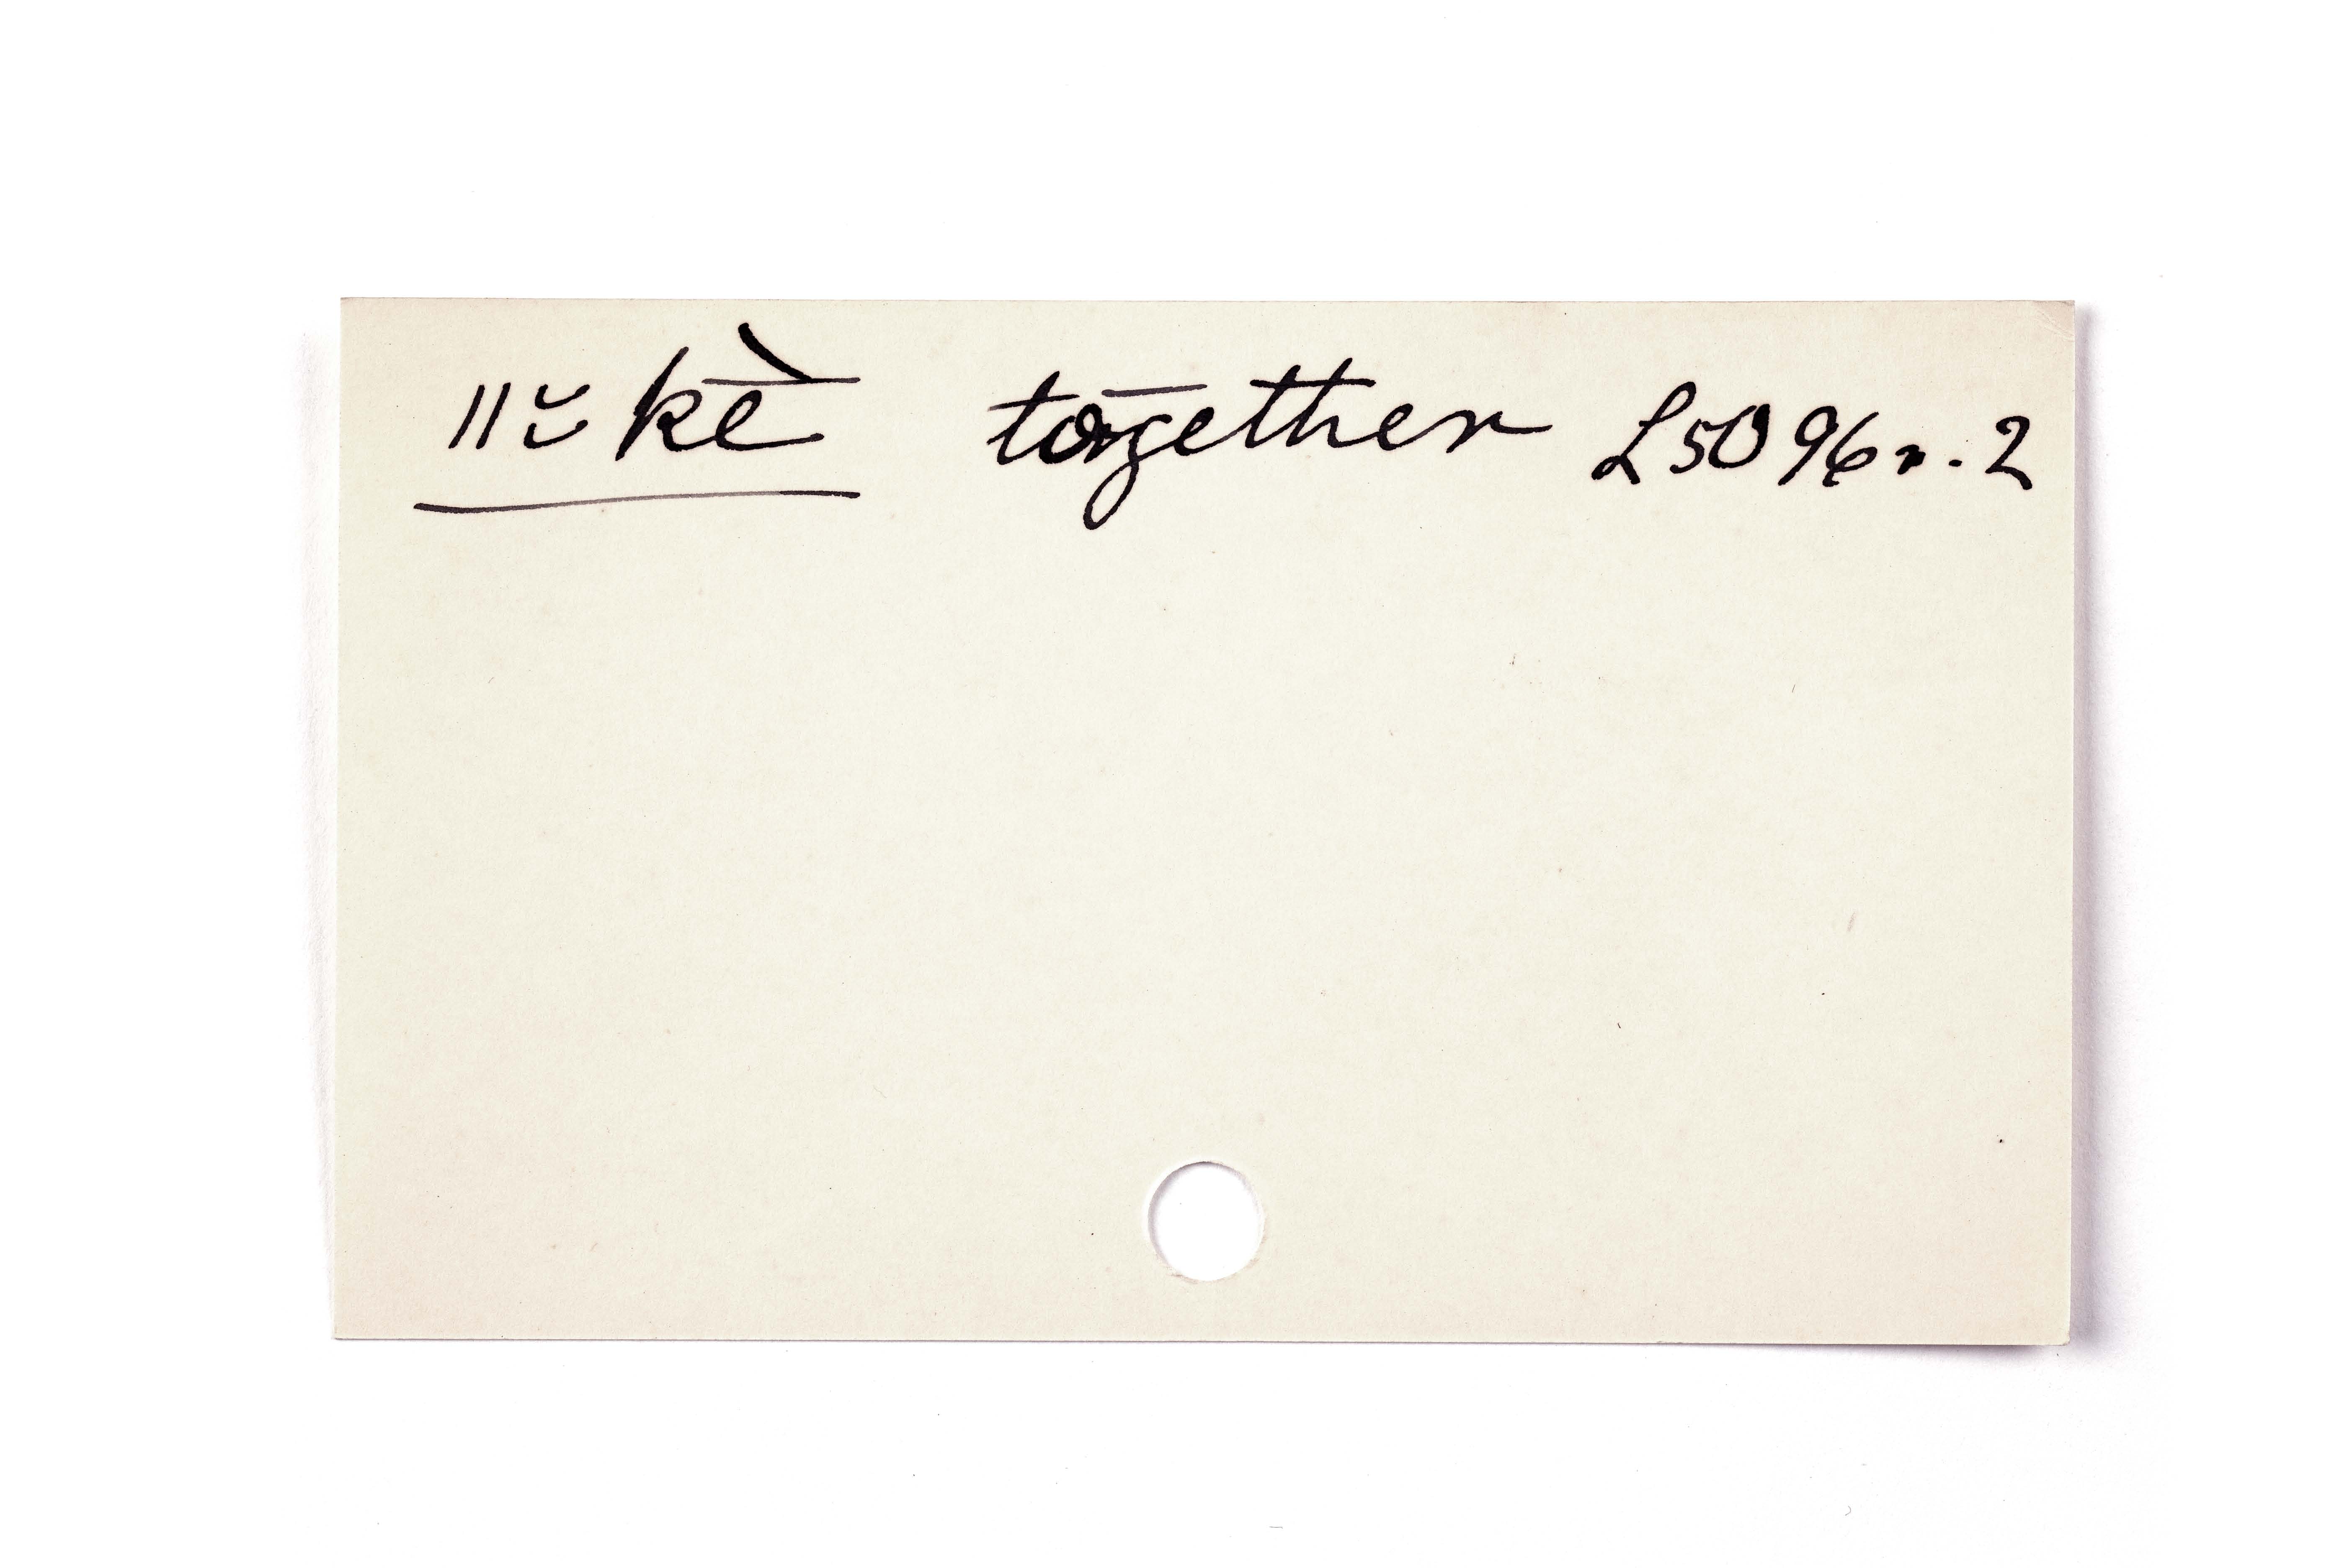 ǁῐ̆kḕ together L5096r.2